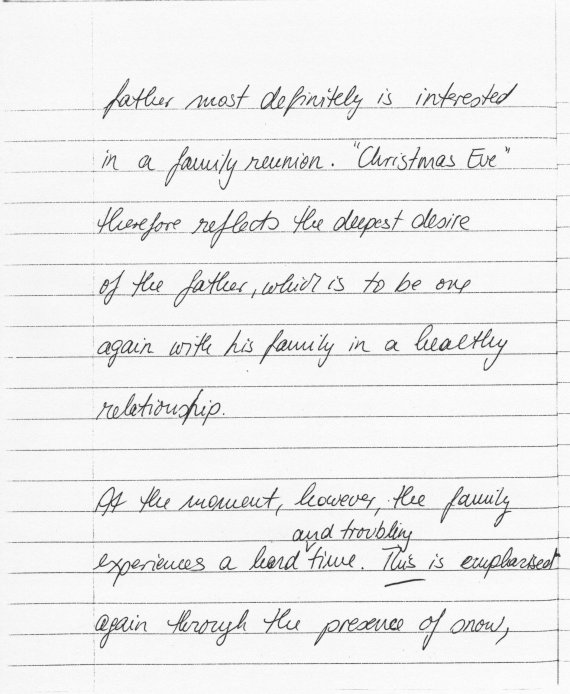 father most definitely is interested
in a family reunion. "Christmas Eve"
therefore reflects the deepest desire
of the father, which is to be one
again with his family in a healthy
relationship.
At the moment, however, the family
and troubling
experiences a hard time. This is emphasised
again through the presence of snow,